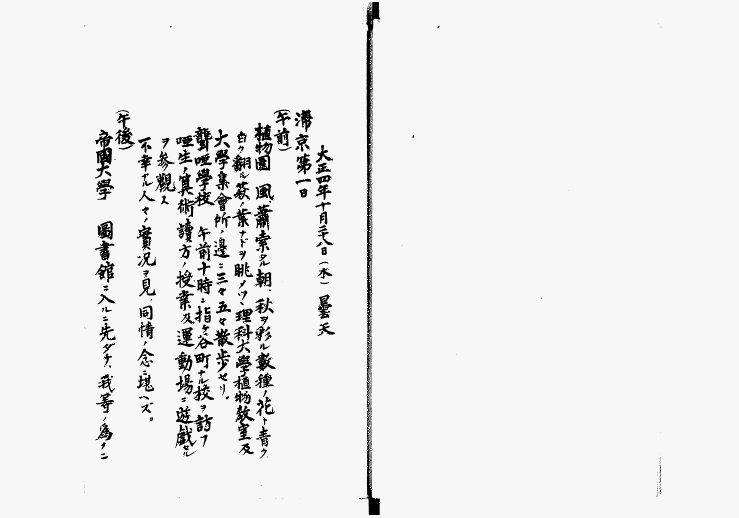 大正四年十月廿八日(木)曇天
滞京第一日
(午前)
植物園 風蕭索タル朝、秋ヲ彩ル数種ノ花ト青ク
白ク翻ル萩ノ葉ナドヲ眺メツヽ理科大學植物教室及
大學集會所ノ邊ニ三々五々散歩セリ。
聾唖學校 午前十時ニ指ケ谷町ナル校ヲ訪フ
唖生ノ算術、讀方ノ授業及運動場ニ遊戯セル
ヲ参觀ス
不幸ナル人々ノ實況ヲ見、同情ノ念ニ堪ヘズ。
(午後)
帝國大學 圖書館ニ入ルニ先ダチ、我等ノ為メニ